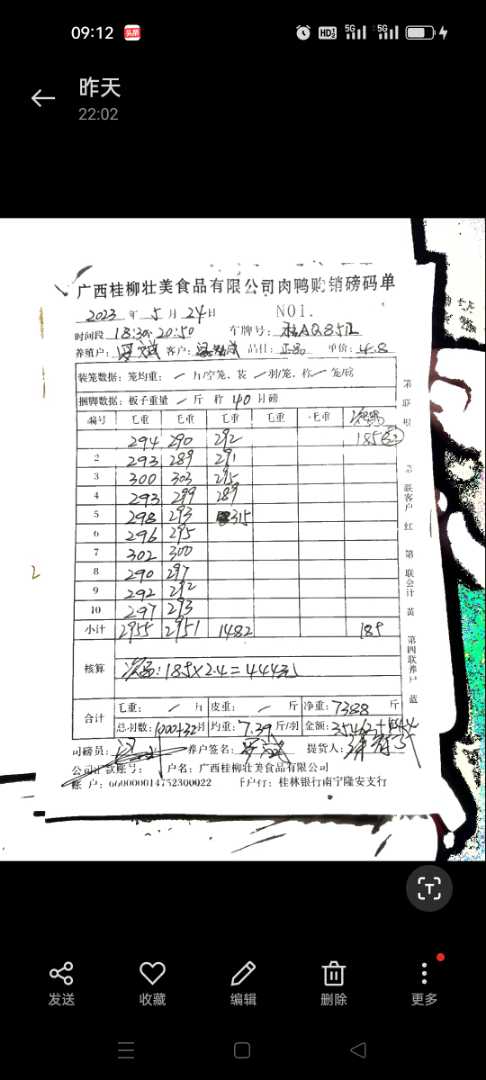 09:12 头条 HD 5G 5G
昨天
22:02
广西桂柳壮美食品有限公司肉鸭购销磅码单
2023 年 5 月 24 日 NO1.
时间段 18:30-20:50 车牌号: 桂AQ
养殖户: 客户: 品名: 正品 单价: 4.8
装笼数据: 笼均重: / 斤/空笼、装 / 羽/笼、称 / 笼/磅
捆脚数据: 板子重量 / 斤 称 40 只磅
编号 毛重 毛重 毛重 毛重 毛重 次鸭
294 290 292 185
2 293 289 291
3 300 303 295
4 293 299 289
5 298 293 315
6 296 295
7 302 300
8 290 297
9 292 292
10 297 293
小计 2955 2951 1482 185
核算 次鸭: 185×2.4=444元
合计 毛重: / 斤 皮重: / 斤 净重: 7388 斤
总羽数: 1000+32 只 均重: 7.39 斤/羽 金额: 35462+444
司磅员: 养户签名: 提货人:
公司汇款账号: 户名: 广西桂柳壮美食品有限公司
账户: 660000014752300022 开户行: 桂林银行南宁隆安支行
第一联
第二联客户 红
第三联会计 黄
第四联养户 蓝
T
发送 收藏 编辑 删除 更多